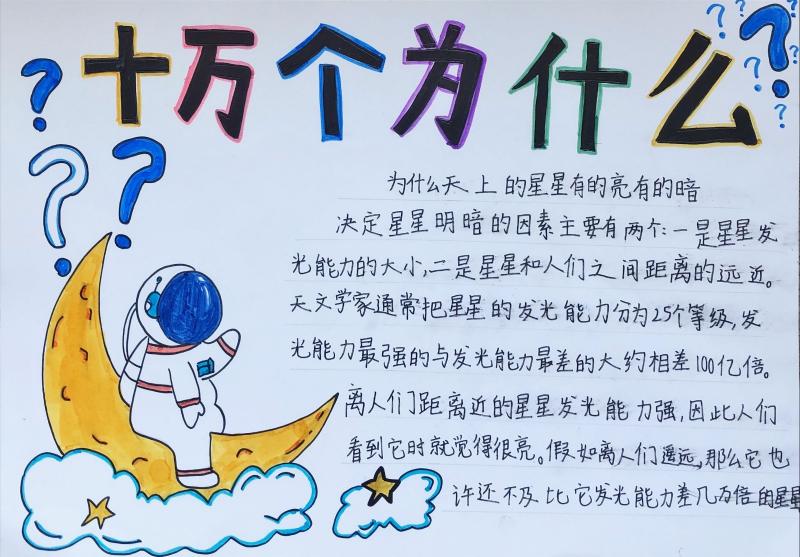 十万个为什么
为什么天上的星星有的亮有的暗
决定星星明暗的因素主要有两个:一是星星发
光能力的大小,二是星星和人们之间距离的远近。
天文学家通常把星星的发光能力分为25个等级,发
光能力最强的与发光能力最差的大约相差100亿倍。
离人们距离近的星星发光能力强,因此人们
看到它时就觉得很亮。假如离人们遥远,那么它也
许还不及比它发光能力差几万倍的星星